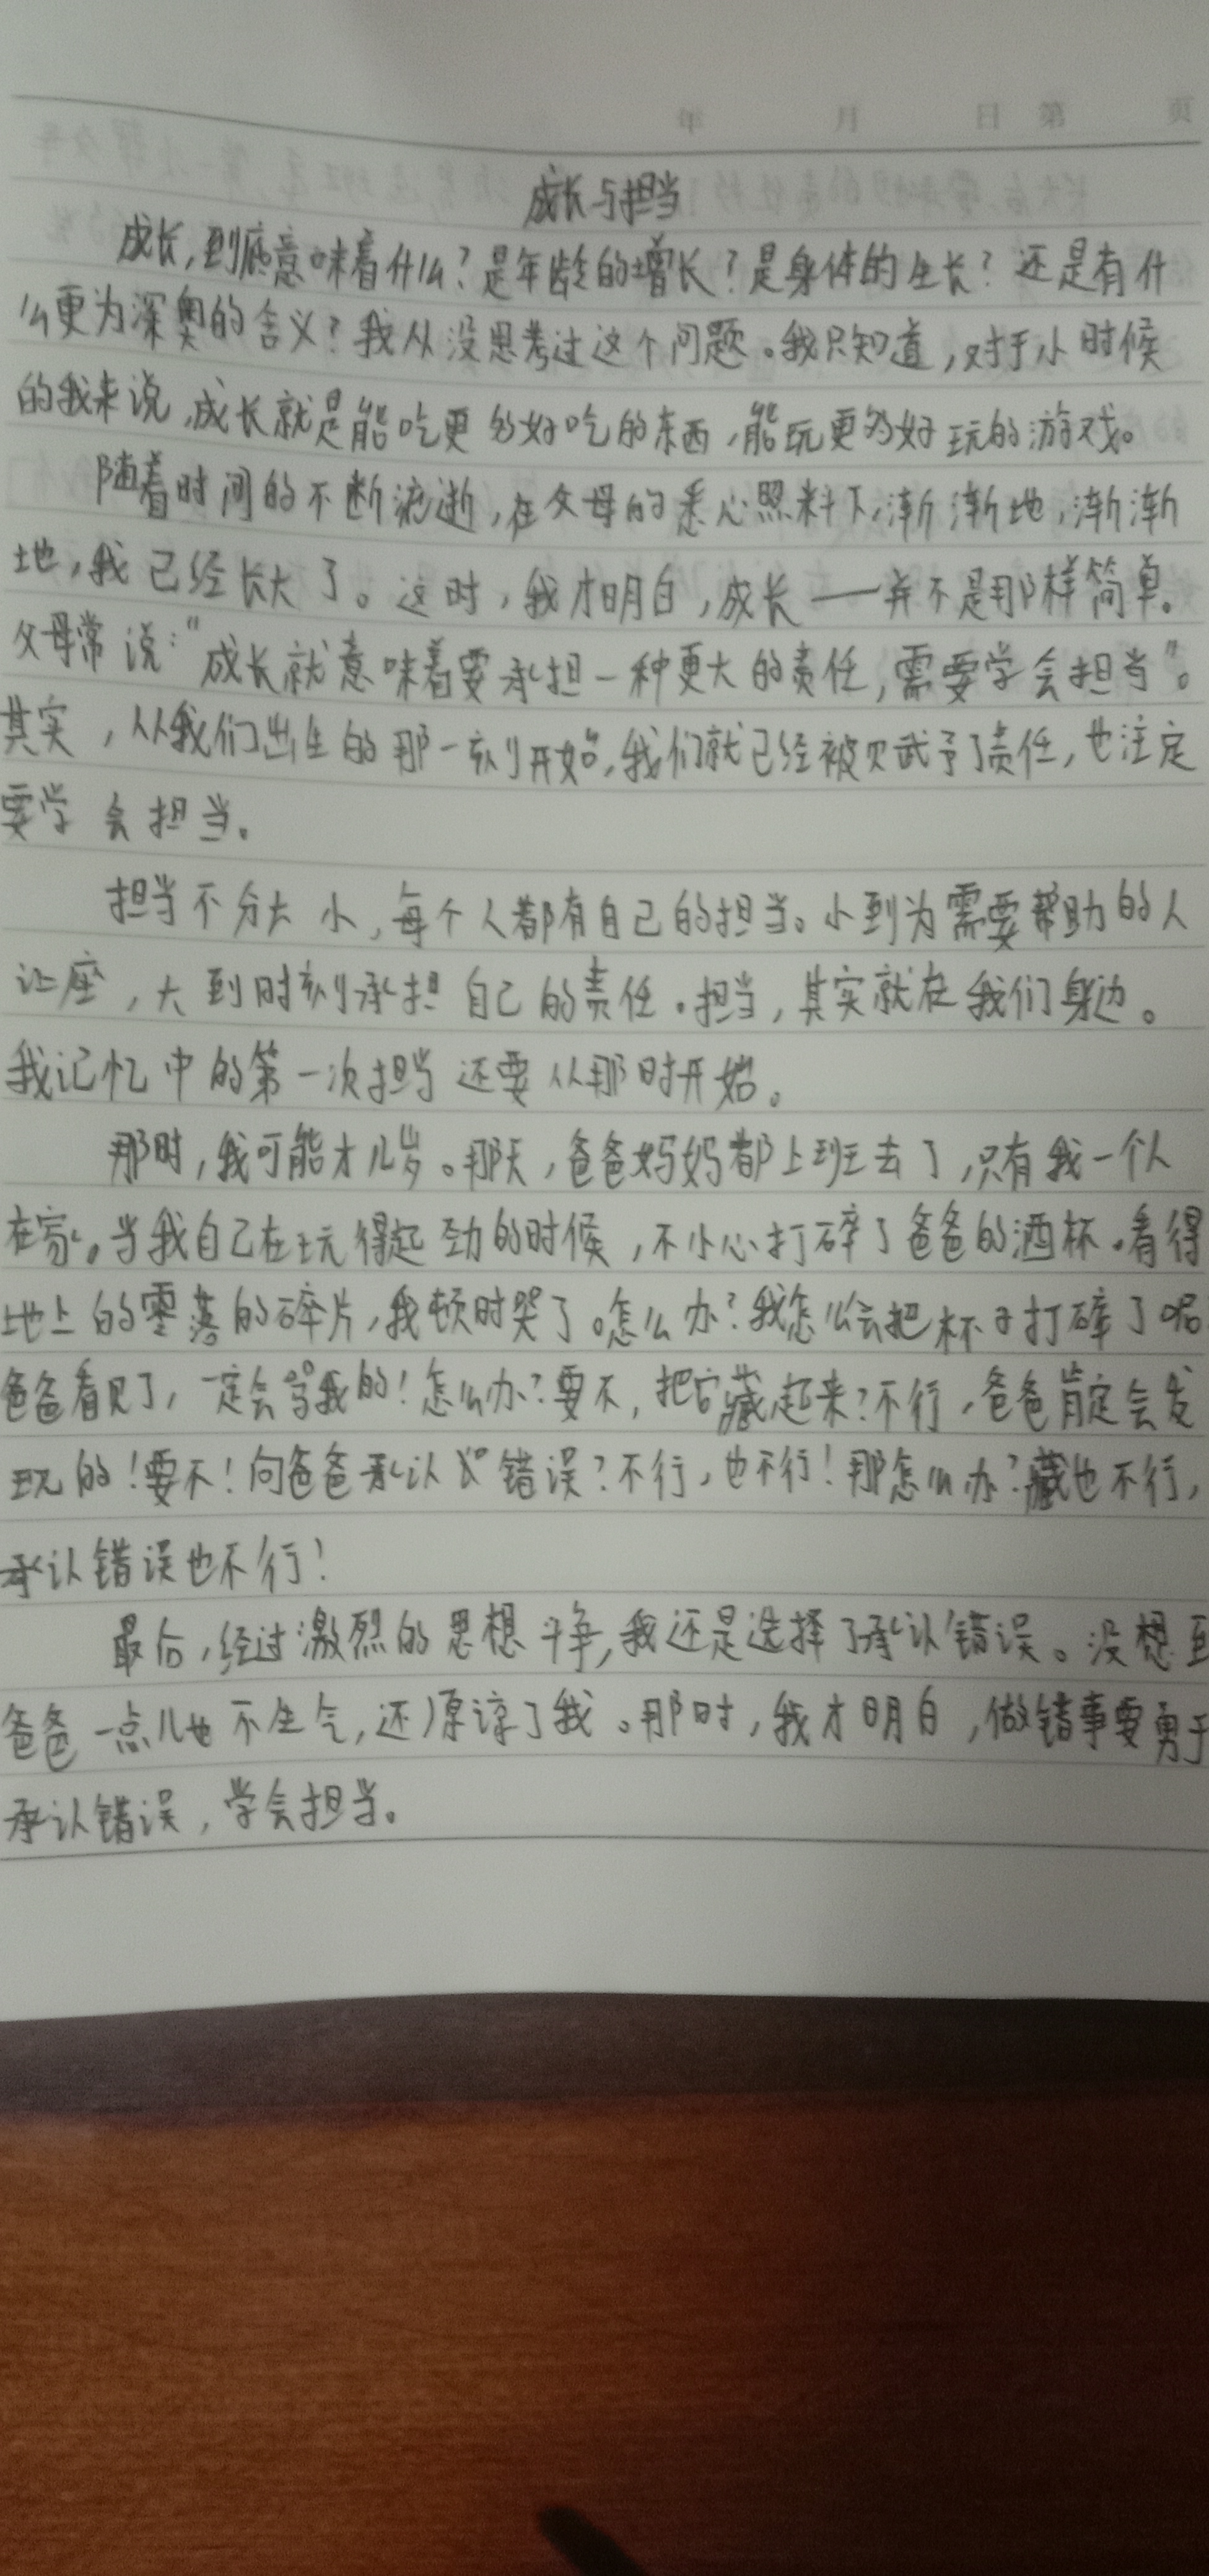 年 月 日 第 页
成长与担当
成长,到底意味着什么?是年龄的增长?是身体的生长?还是有什
么更为深奥的含义?我从没思考过这个问题。我只知道,对于小时候
的我来说,成长就是能吃更多好吃的东西,能玩更多好玩的游戏。
随着时间的不断流逝,在父母的悉心照料下,渐渐地,渐渐
地,我已经长大了。这时,我才明白,成长——并不是那样简单。
父母常说:“成长就意味着要承担一种更大的责任,需要学会担当”。
其实,从我们出生的那一刻开始,我们就已经被赋予了责任,也注定
要学会担当。
担当不分大小,每个人都有自己的担当。小到为需要帮助的人
让座,大到时刻承担自己的责任。担当,其实就在我们身边。
我记忆中的第一次担当还要从那时开始。
那时,我可能才几岁。那天,爸爸妈妈都上班去了,只有我一个人
在家。当我自己在玩得起劲的时候,不小心打碎了爸爸的酒杯。看得
地上的零落的碎片,我顿时哭了。怎么办?我怎么会把杯子打碎了呢
爸爸看见了,一定会骂我的!怎么办?要不,把它藏起来?不行,爸爸肯定会发
现的!要不!向爸爸承认错误?不行,也不行!那怎么办?藏也不行,
承认错误也不行!
最后,经过激烈的思想斗争,我还是选择了承认错误。没想到
爸爸一点儿也不生气,还原谅了我。那时,我才明白,做错事要勇于
承认错误,学会担当。